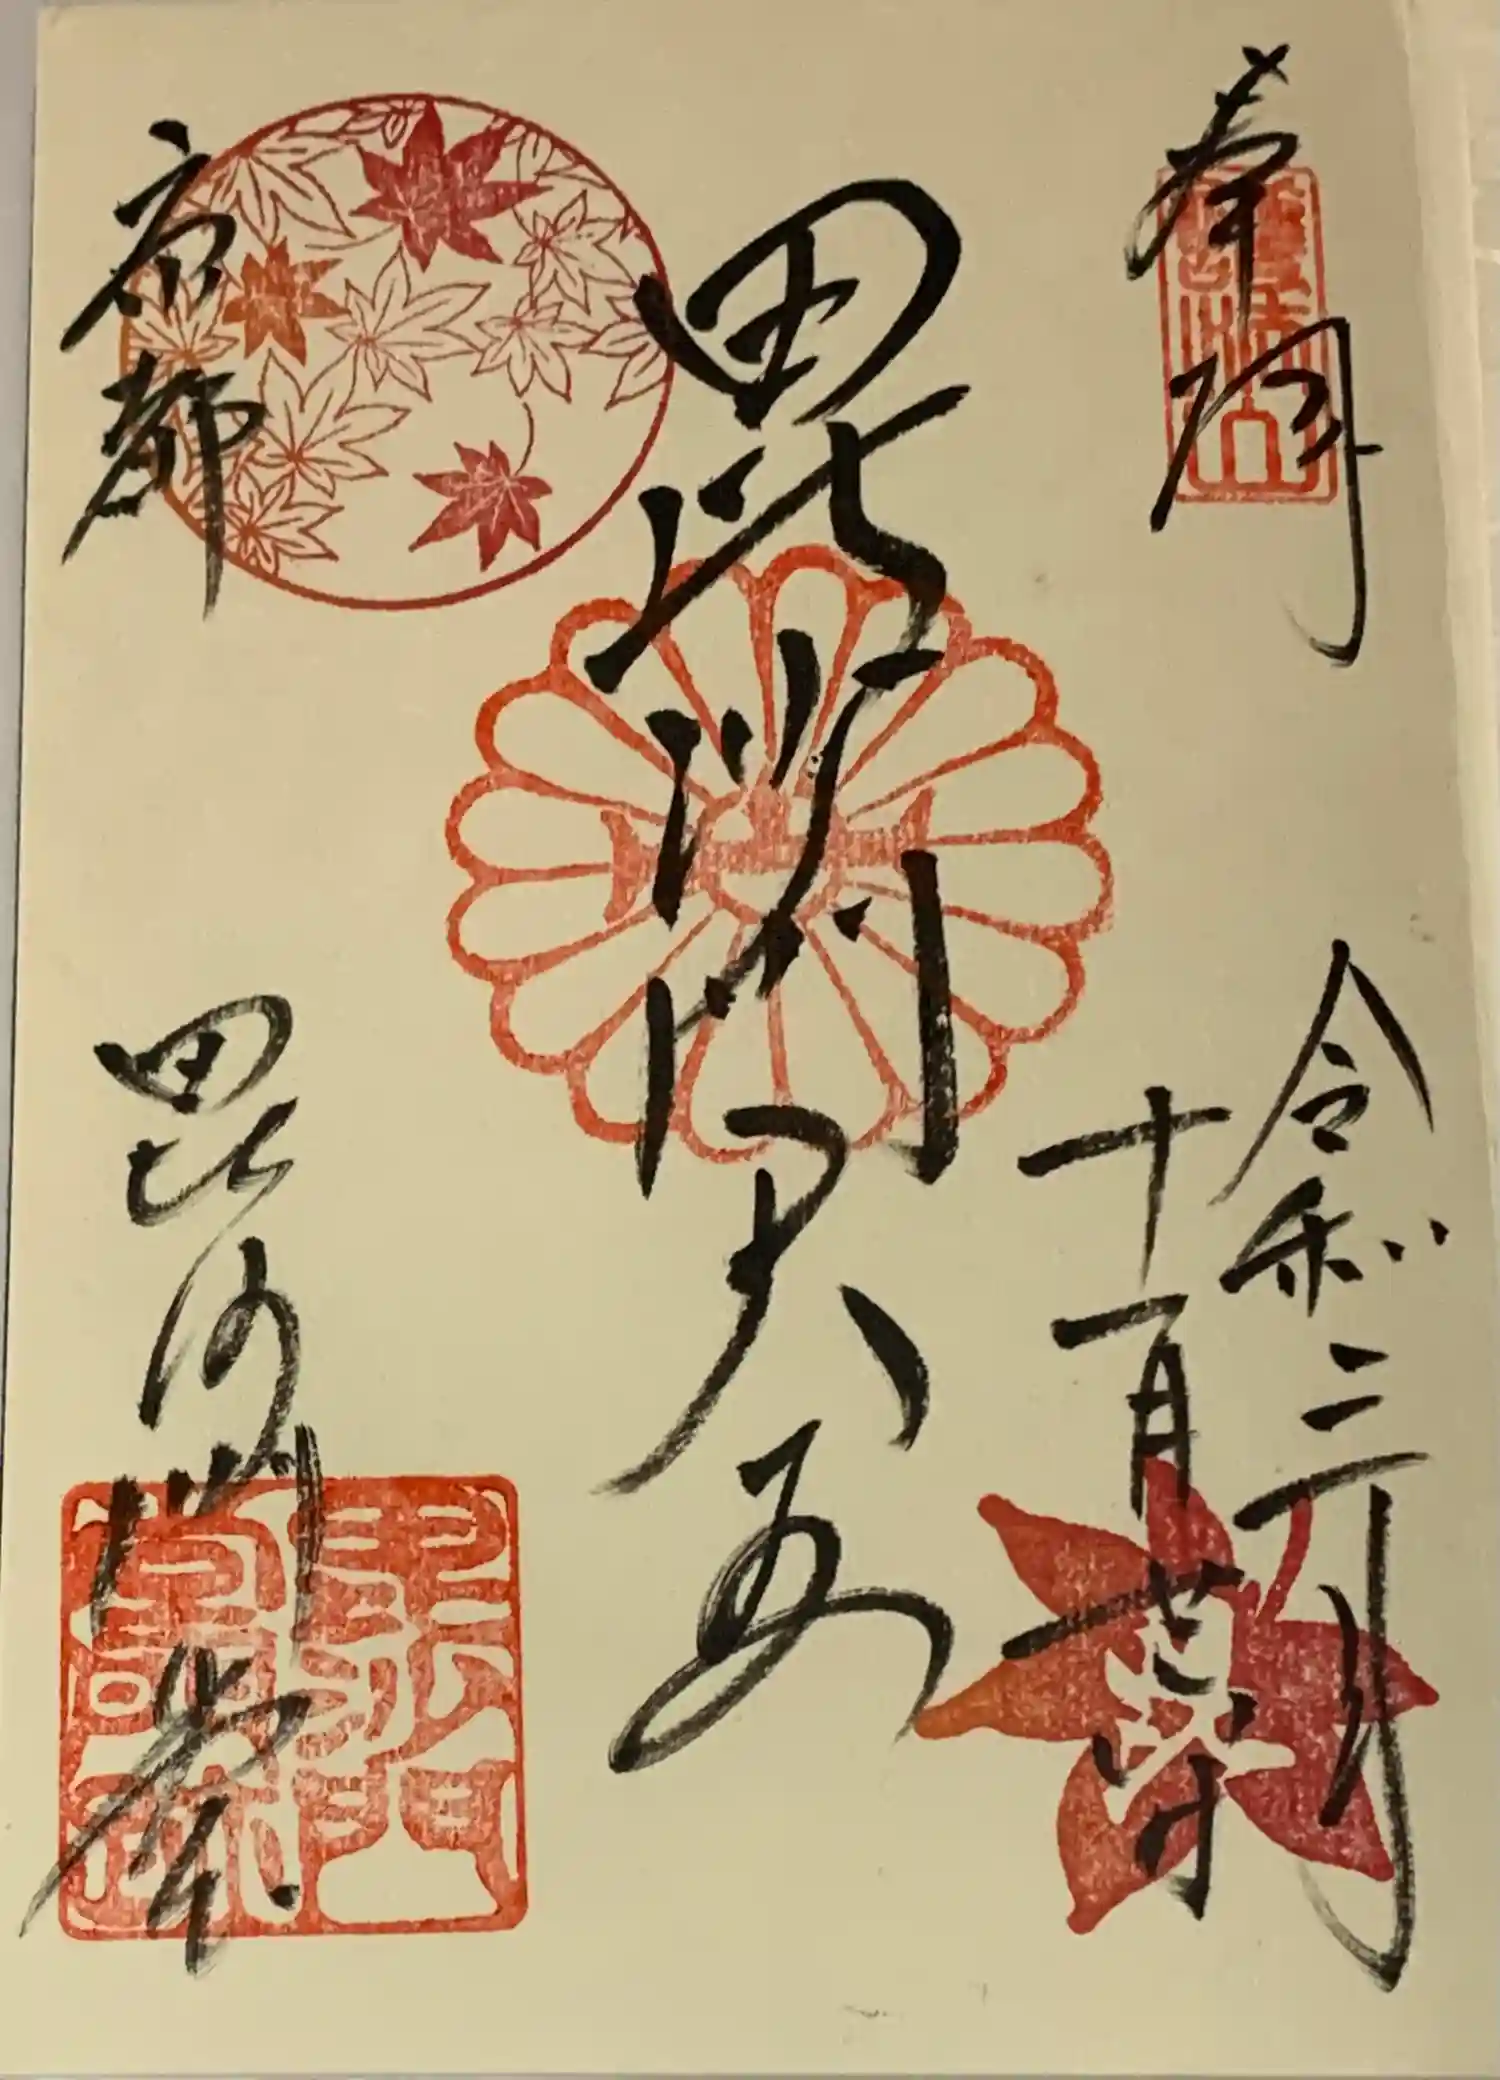 奉拝
護法山
令和三年
十一月
毘沙門天
京都
毘沙門堂